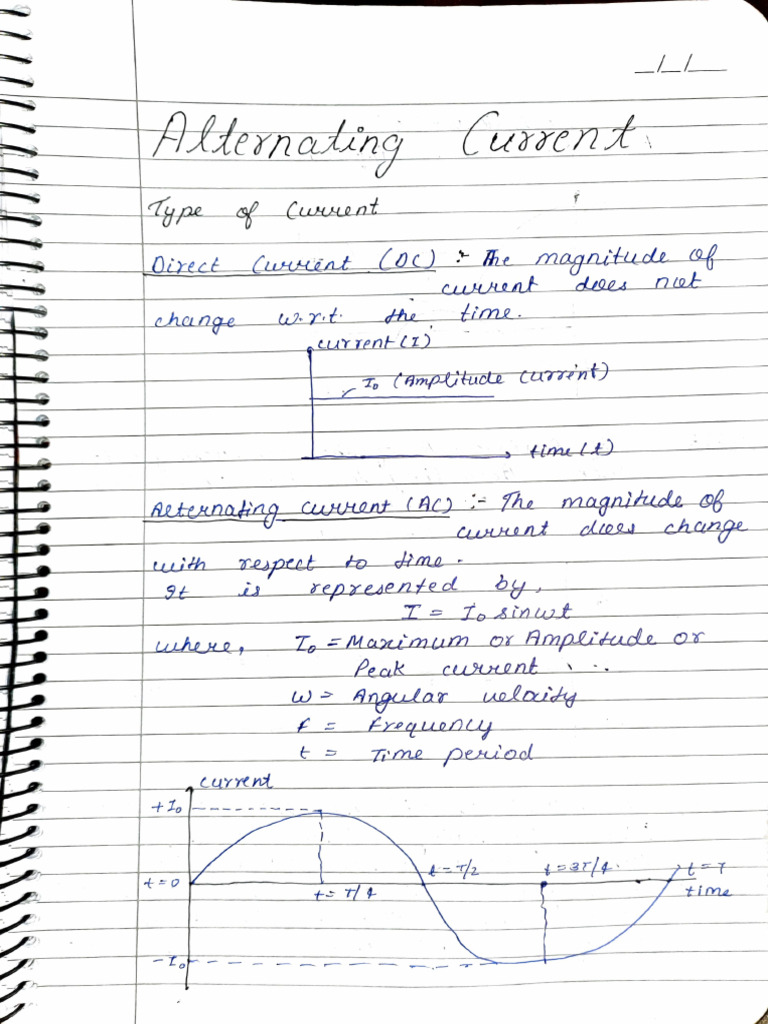 _/_/__
Alternating Current
Type of Current
Direct Current (DC) :- The magnitude of
current does not
change w.r.t. the time.
current (I)
I₀ (Amplitude current)
time (t)
Alternating current (AC) :- The magnitude of
current does change
with respect to time.
It is represented by,
I = I₀ sinωt
where, I₀ = Maximum or Amplitude or
Peak current
ω = Angular velocity
f = Frequency
t = Time period
current
+I₀
t = T/2 t = 3T/4 t = T
t = 0 t = T/4 time
-I₀